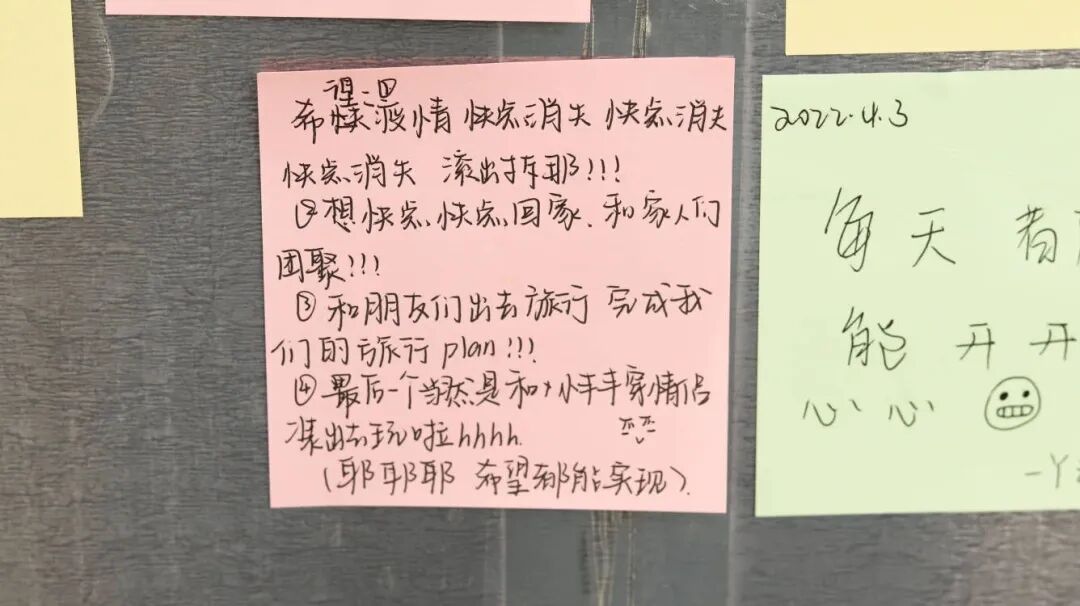 望
希疫情 快点消失 快点消失
快点消失 滚出
②想快点快点回家、和家人们
团聚!!!
③和朋友们出去旅行 完成我
们的旅行plan!!!
④最后一个当然是和 穿情侣
出去玩啦hhhh.
(耶耶耶 希望都能实现)
2022.4.3
每天 都
能 开开
心心